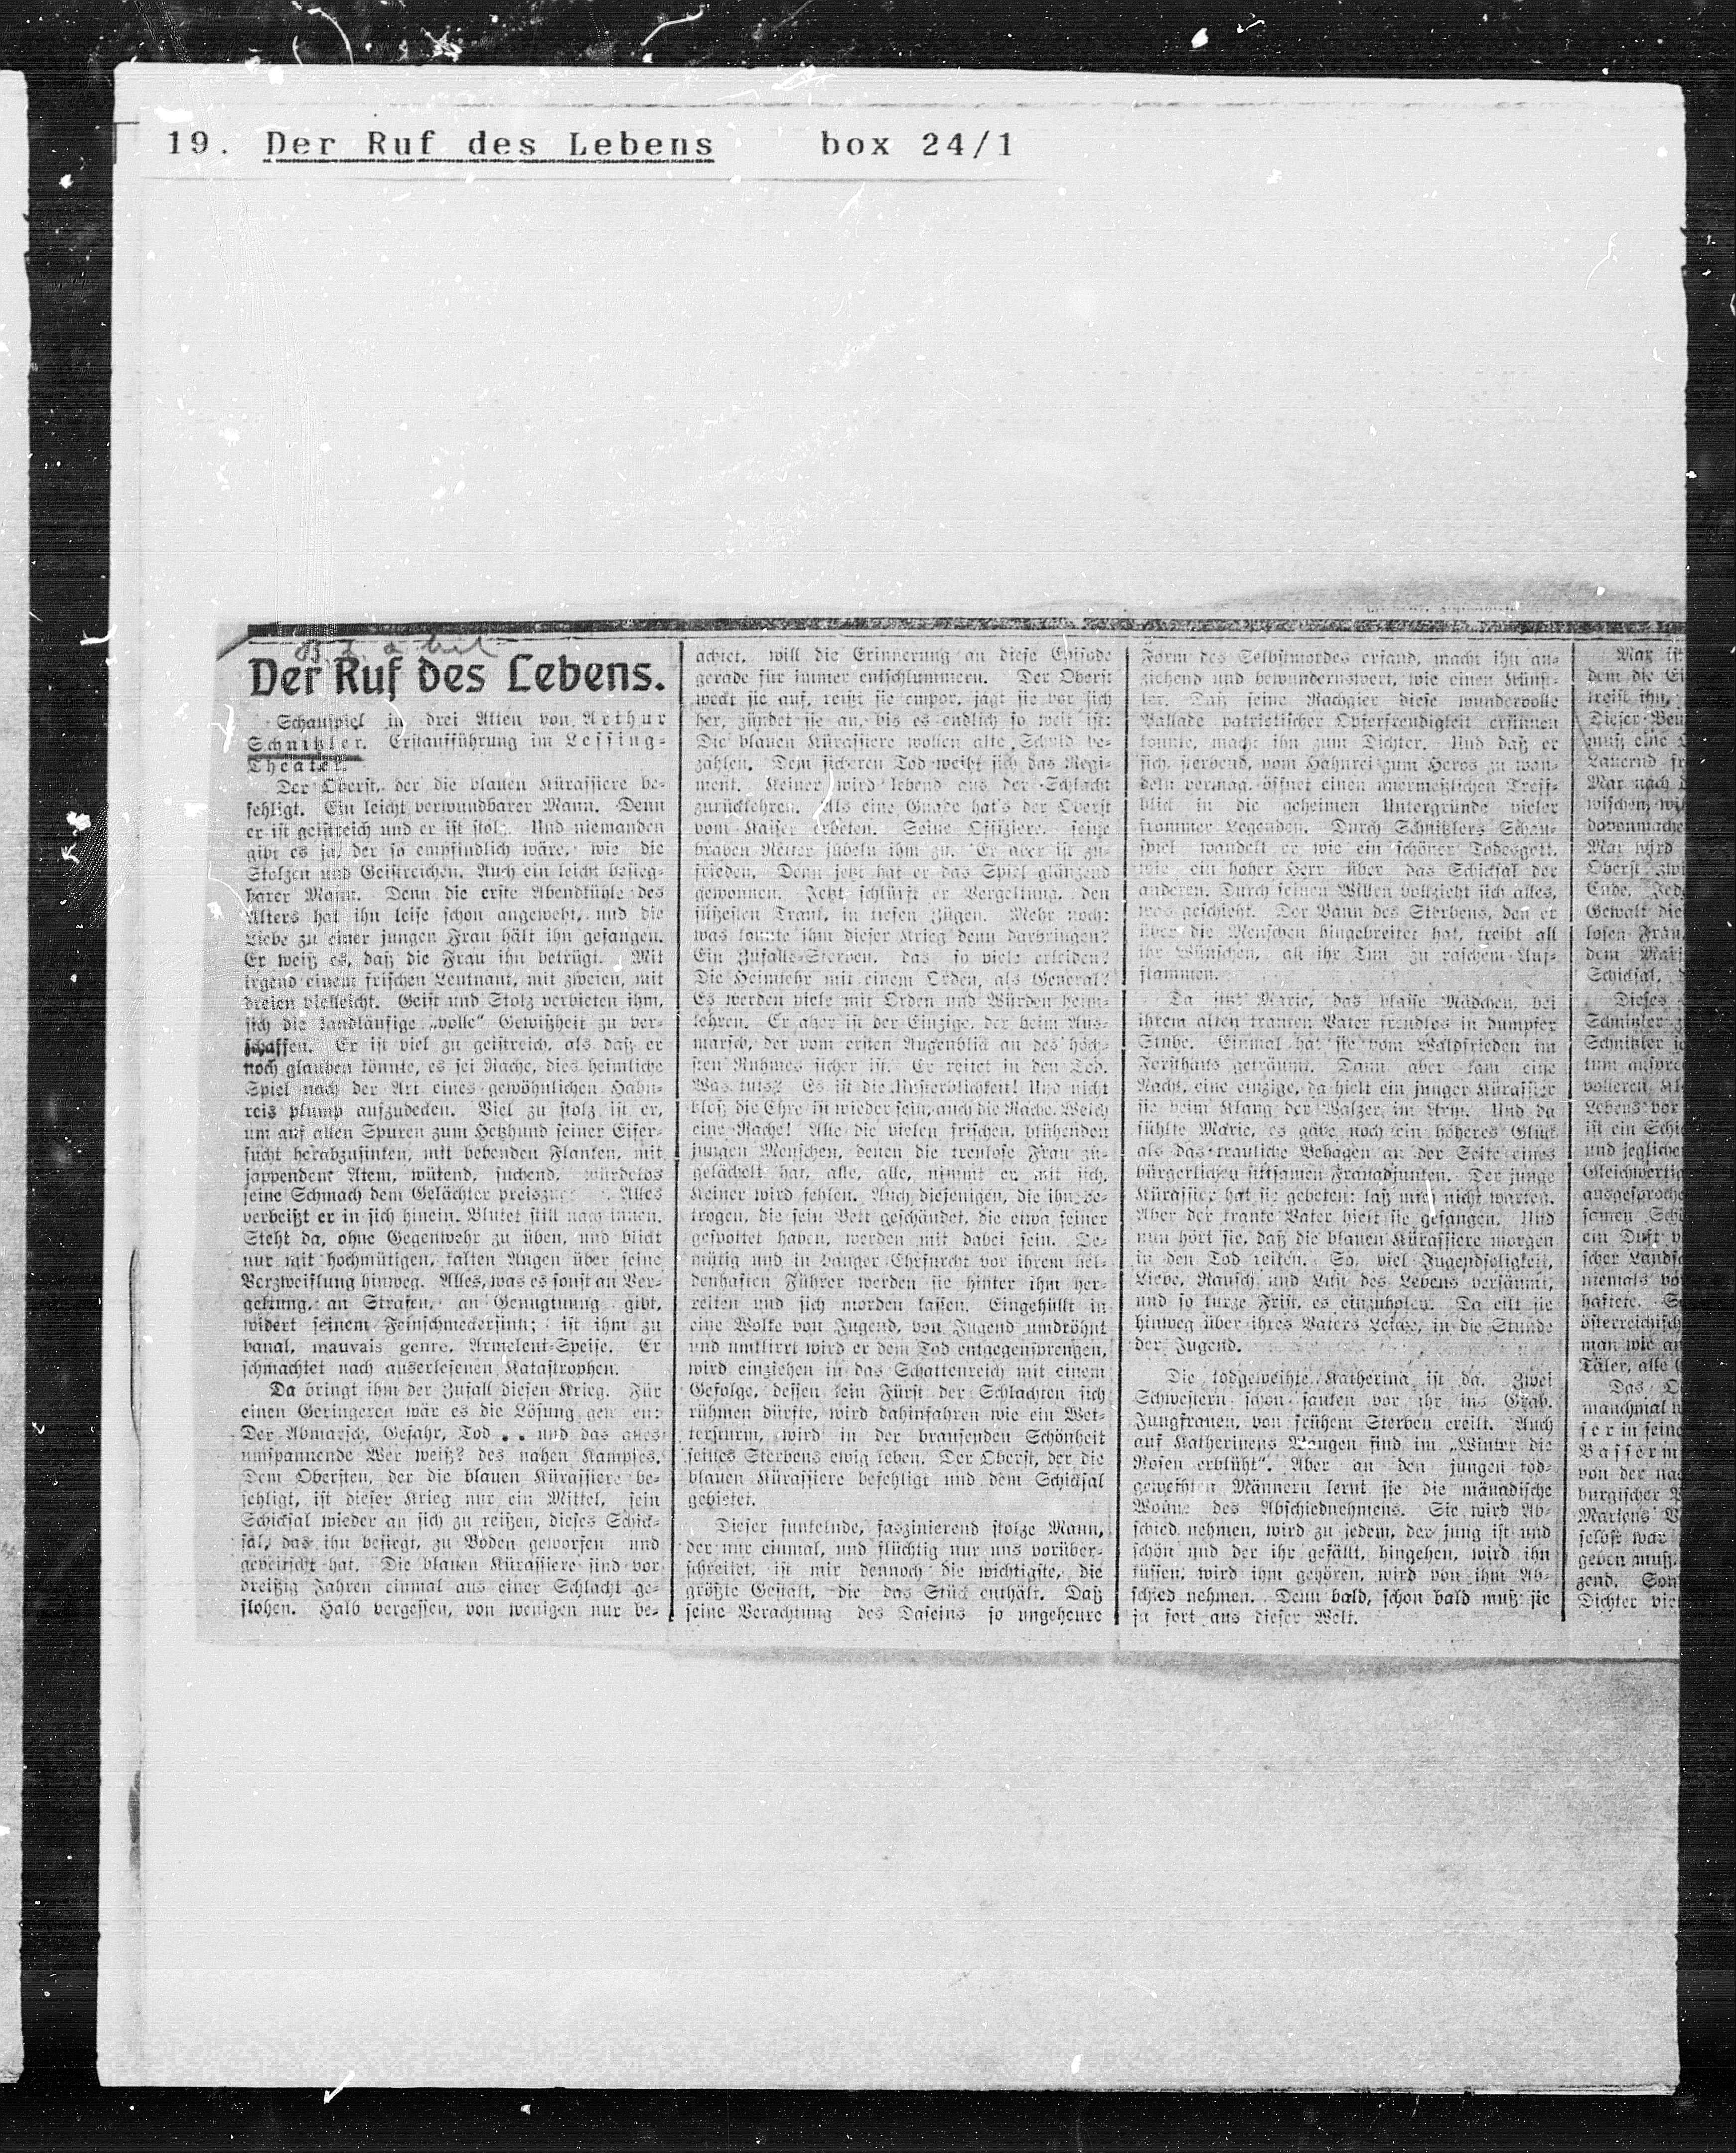 19. Der Ruf des Lebens box 24/1
B. Z. a
Der Ruf des Lebens.
Schauspiel in drei Akten von Arthur
Schnitzler. Erstaufführung im Lessing-
Theater.
Der Oberst, der die blauen Kürassiere be-
fehligt. Ein leicht verwundbarer Mann. Denn
er ist geistreich und er ist stolz. Und niemanden
gibt es ja, der so empfindlich wäre, wie die
Stolzen und Geistreichen. Auch ein leicht besieg-
barer Mann. Denn die erste Abendkühle des
Alters hat ihn leise schon angeweht, und die
Liebe zu einer jungen Frau hält ihn gefangen.
Er weiß es, daß die Frau ihn betrügt. Mit
irgend einem frischen Leutnant, mit zweien, mit
dreien vielleicht. Geist und Stolz verbieten ihm,
sich die landläufige „volle“ Gewißheit zu ver-
schaffen. Er ist viel zu geistreich, als daß er
noch glauben könnte, es sei Rache, dies heimliche
Spiel nach der Art eines gewöhnlichen Hahn-
reis plump aufzudecken. Viel zu stolz ist er,
um auf allen Spuren zum Hetzhund seiner Eifer-
sucht herabzusinken, mit bebenden Flanken, mit
jappendem Atem, wütend, suchend, würdelos
seine Schmach dem Gelächter Alles
verbeißt er in sich hinein. Blutet still nach innen.
Steht da, ohne Gegenwehr zu üben, und blickt
nur mit hochmütigen, kalten Augen über seine
Verzweiflung hinweg. Alles, was es sonst an Ver-
geltung, an Strafen, an Genugtuung gibt,
widert seinem Feinschmeckersinn; ist ihm zu
banal, mauvais genre, Armeleut-Speise. Er
schmachtet nach auserlesenen Katastrophen.
Da bringt ihm der Zufall diesen Krieg. Für
einen Geringeren wär es die Lösung
Der Abmarsch, Gefahr, Tod . . und das alles
umspannende Wer weiß? des nahen Kampfes.
Dem Obersten, der die blauen Kürassiere be-
fehligt, ist dieser Krieg nur ein Mittel, sein
Schicksal wieder an sich zu reißen, dieses Schick-
sal, das ihn besiegt, zu Boden geworfen und
geknirscht hat. Die blauen Kürassiere sind vor
dreißig Jahren einmal aus einer Schlacht ge-
flohen. Halb vergessen, von wenigen nur be-
achtet, will die Erinnerung an diese Episode
gerade für immer entschlummern. Der Oberst
weckt sie auf, reißt sie empor, jagt sie vor sich
her, zündet sie an, bis es endlich so weit ist:
Die blauen Kürassiere wollen alte Schuld be-
zahlen. Dem sicheren Tod weiht sich das Regi-
ment. Keiner wird lebend aus der Schlacht
zurückkehren. Als eine Gnade hat's der Oberst
vom Kaiser erbeten. Seine Offiziere, seine
braven Reiter jubeln ihm zu. Er aber ist zu-
frieden. Denn jetzt hat er das Spiel glänzend
gewonnen. Jetzt schlürft er Vergeltung, den
süßesten Trank, in tiefen Zügen. Mehr noch:
was konnte ihm dieser Krieg denn darbringen?
Ein Zufalls-Sterben, das so viele erleiden?
Die Heimkehr mit einem Orden, als General?
Es werden viele mit Orden und Würden heim-
kehren. Er aber ist der Einzige, der beim Aus-
marsch, der vom ersten Augenblick an des höch-
sten Ruhmes sicher ist. Er reitet in den Tod.
Was tuts? Es ist die Unsterblichkeit! Und nicht
bloß die Ehre ist wieder sein, auch die Rache. Welch
eine Rache! Alle die vielen frischen, blühenden
jungen Menschen, denen die treulose Frau zu-
gelächelt hat, alle, alle, nimmt er mit sich.
Keiner wird fehlen. Auch diejenigen, die ihn be-
trogen, die sein Bett geschändet, die etwa seiner
gespottet haben, werden mit dabei sein. De-
mütig und in banger Ehrfurcht vor ihrem hel-
denhaften Führer werden sie hinter ihm her-
reiten und sich morden lassen. Eingehüllt in
eine Wolke von Jugend, von Jugend umdröhnt
und umklirrt wird er dem Tod entgegensprengen,
wird einziehen in das Schattenreich mit einem
Gefolge, dessen kein Fürst der Schlachten sich
rühmen dürfte, wird dahinfahren wie ein Wet-
tersturm, wird in der brausenden Schönheit
seines Sterbens ewig leben. Der Oberst, der die
blauen Kürassiere befehligt und dem Schicksal
gebietet.
Dieser funkelnde, faszinierend stolze Mann,
der nur einmal, und flüchtig nur uns vorüber-
schreitet, ist mir dennoch die wichtigste, die
größte Gestalt, die das Stück enthält. Daß
seine Verachtung des Daseins so ungeheure
Form des Selbstmordes erfand, macht ihn an-
ziehend und bewundernswert, wie einen Künst-
ler. Daß seine Rachgier diese wundervolle
Ballade patriotischer Opferfreudigkeit ersinnen
konnte, macht ihn zum Dichter. Und daß er
sich, sterbend, vom Hahnrei zum Heros zu wan-
deln vermag, öffnet einen unermeßlichen Tref-
blick in die geheimen Untergründe vieler
frommer Legenden. Durch Schnitzlers Schau-
spiel wandelt er wie ein schöner Todesgott,
wie ein hoher Herr über das Schicksal der
anderen. Durch seinen Willen vollzieht sich alles,
was geschieht. Der Bann des Sterbens, den er
über die Menschen hingebreitet hat, treibt all
ihr Wünschen, all ihr Tun zu raschem Auf-
flammen.
Da sitzt Marie, das blasse Mädchen, bei
ihrem alten kranken Vater freudlos in dumpfer
Stube. Einmal hat sie vom Waldfrieden im
Forsthaus geträumt. Dann aber kam eine
Nacht, eine einzige, da hielt ein junger Kürassier
sie beim Klang der Walzer im Arm. Und da
fühlte Marie, es gäbe noch ein höheres Glück
als das trauliche Behagen an der Seite eines
bürgerlichen sittsamen Forstadjunkten. Der junge
Kürassier hat sie gebeten: laß mich nicht warten.
Aber der kranke Vater hielt sie gefangen. Und
nun hört sie, daß die blauen Kürassiere morgen
in den Tod reiten. So viel Jugendseligkeit,
Liebe, Rausch und Lust des Lebens versäumt,
und so kurze Frist, es einzuholen. Da eilt sie
hinweg über ihres Vaters Leiche, in die Stunde
der Jugend.
Die todgeweihte Katherina ist da. Zwei
Schwestern schon sanken vor ihr ins Grab.
Jungfrauen, von frühem Sterben ereilt. Auch
auf Katherinens Wangen sind im „Winter die
Rosen erblüht“. Aber an den jungen tod-
geweihten Männern lernt sie die mänadische
Wonne des Abschiednehmens. Sie wird Ab-
schied nehmen, wird zu jedem, der jung ist und
schön und der ihr gefällt, hingehen, wird ihn
küssen, wird ihm gehören, wird von ihm Ab-
schied nehmen. Denn bald, schon bald muß sie
ja fort aus dieser Welt.
Max ist
dem die Ei
treist ihn,
Dieser
muß eine
Lauernd
Max nach
wischen, wi
davonmache
Max wird
Oberst zwi
Ende. Jed
Gewalt die
losen Frau,
dem Mari
Schicksal,
Dieses
Schnitzler
Schnitzler
tum anspre
volleren
Lebens vor
ist ein Schi
und jegliche
Gleichwertig
ausgesproche
samen Schi
ein Duft v
scher Landsc
niemals
haftete.
österreichisch
man wie
Täler, alle
Das
manchmal
ser in seine
Basserm
von der
burgischer
Mariens
selbst war
geben muß.
zend. Son
Dichter viel